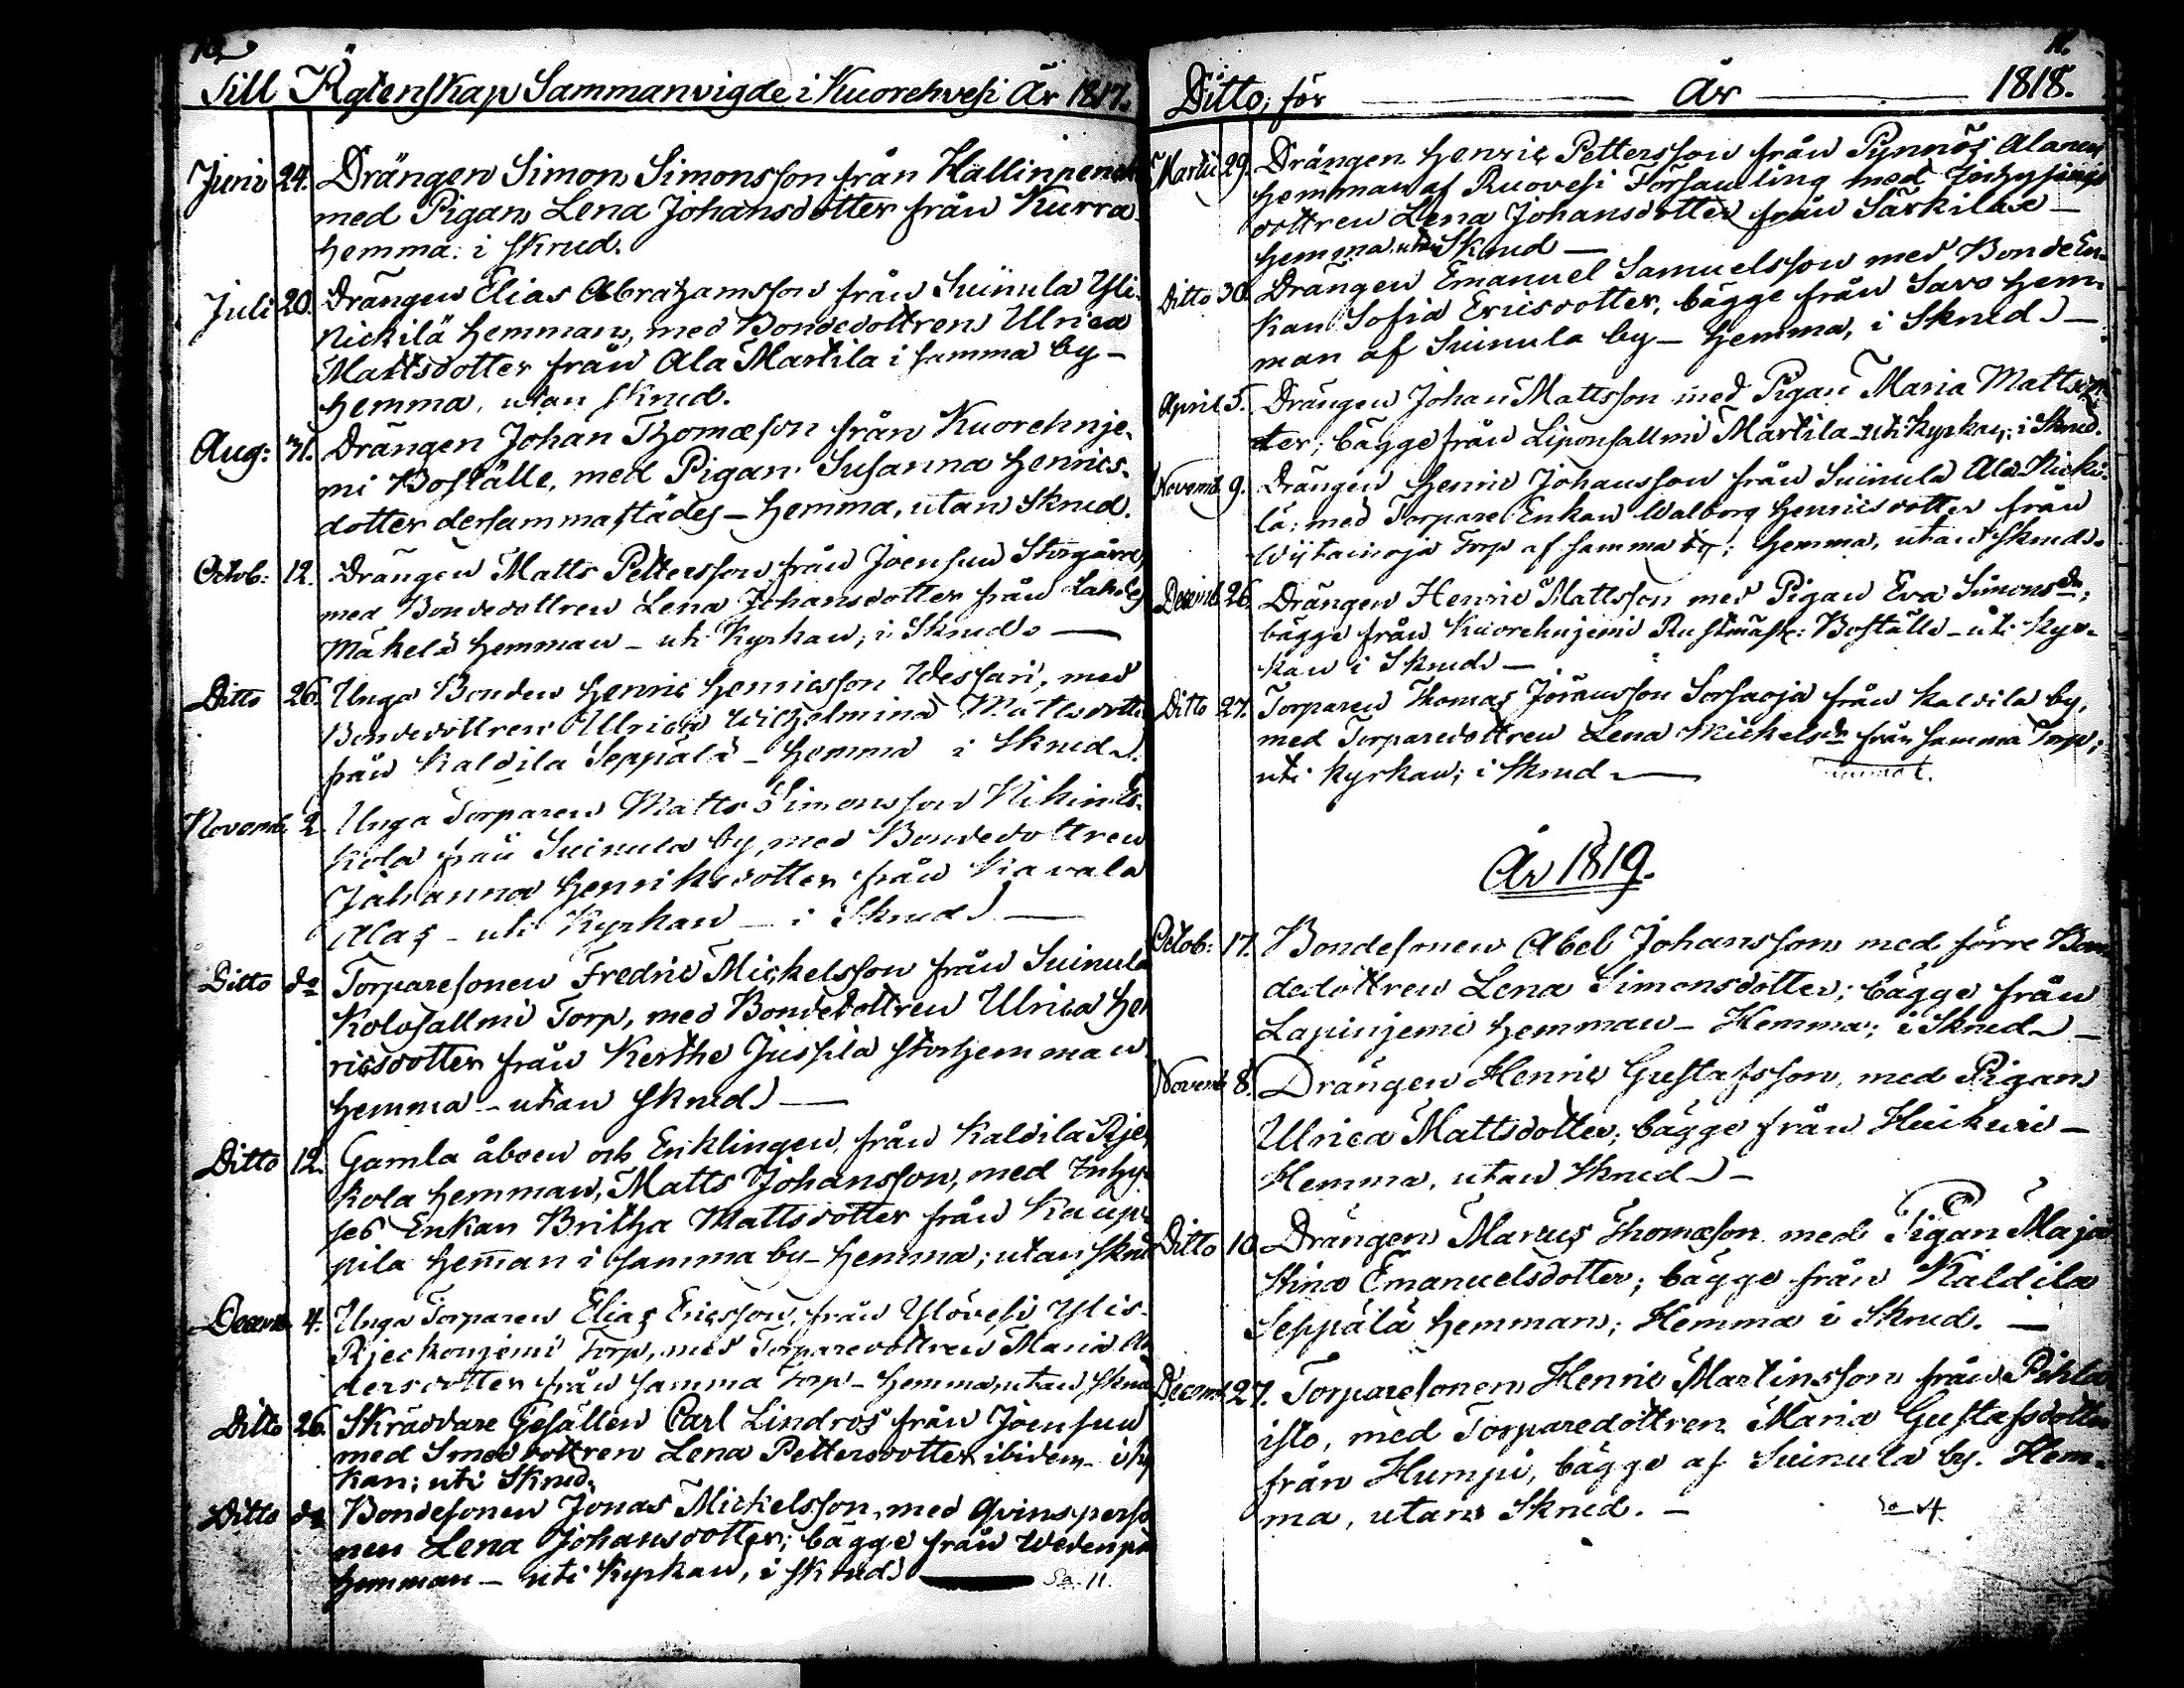 Till Ägtenskap Sammanvigde i Kuorehvesi År 1817.
Juni 24. Drängen Simon Simonsson från Hallinpenek
med Pigan Lena Johansdotter från Kurra
hemma: i skrud.
Juli 20. Drängen Elias Abrahamsson från Suinula Yli-
Nickilä hemman, med Bondedottren Ulrica
Mattsdotter från Ala Martila i samma by –
hemma, utan skrud.
Aug: 31. Drängen Johan Thomæson från Kuorehnje-
mi Boställe, med Pigan Susanna Henrics-
dotter dersammastädes – hemma, utan skrud.
Octob: 12. Drängen Matts Pettersson från Joensuu Storgård,
med Bondedottren Lena Johansdotter från Lahdes
Mäkelä hemman – uti Kyrkan; i Skrud. —
Ditto 26. Unga Bonden Henric Henricsson Wessari, med
Bondedottren Ulrica Wilhelmina Mattsdotter
från Kaldila Seppälä – hemma i Skrud.
Novemb. 2. Unga Torparen Matts Simonsson
kola från Suinula by, med Bondedottren
Johanna Henriksdotter från Kavala
Alas – uti Kyrkan – i Skrud. —
Ditto do Torparesonen Fredric Mickelsson från Suinula
Kolosallmi Torp, med Bondedottren Ulrica Hen
ricsdotter från Kerthe Jussila storhemman
hemma – utan skrud. —
Ditto 12. Gamla åboen och Enklingen, från Kaldila Rje-
kola hemman, Matts Johansson, med Inhy-
ses Enkan Britha Mattsdotter från Kaup-
pila hem̄an i samma by – hemma; utan skrud
Decemb. 4. Unga Torparen Elias Ericsson, från Ylövesi Ylis-
Rjeckonjemi Torp, med Torparedottren Maria An
dersdotter från samma Torp – hemma, utan skrud
Ditto 26. Skräddare Gesällen Carl Lindros från Joensuu
med Smeddottren Lena Pettersdotter ibidem – i Ky
kan; uti Skrud.
Ditto do Bondesonen Jonas Mickelsson, med qvinsperso
nen Lena Johansdotter; bägge från Wedenpä
hemman – uti Kyrkan, i skrud. Sa. 11.
11.
Ditto, för — År — 1818.
Martii 29. Drängen Henric Pettersson från Pynnös Alanen
hemman af Ruovesi Församling med
dottren Lena Johansdotter från Särkilax –
hemma utan Skrud —
Ditto 30. Drängen Emanuel Samuelsson med Bonde En-
kan Sofia Ericsdotter, bägge från Savo hem-
man af Suinula by – hemma, i Skrud. —
April 5. Drängen Johan Mattsson med Pigan Maria Mattsdot
ter; bägge från Liponsallmi Martila – uti kyrkan; i Skrud.
Novemb. 9. Drängen Henric Johansson från Suinula Ala Nicki-
lä; med Torpare Enkan Walborg Henricsdotter från
Wytainoja Torp af samma by; hemma, utan Skrud.
Decemb. 26. Drängen Henric Mattsson med Pigan Eva Simonsdr;
bägge från Kuorehnjemi Rustmäst: Boställe – uti Kyr-
kan i Skrud. —
Ditto 27. Torparen Thomas Jöransson Sorsaoja från Kaldila by,
med Torparedottren Lena Mickelsdr från samma Torp;
uti kyrkan; i Skrud —
År 1819.
Octob: 17. Bondesonen Abel Johansson med förre Bon
dedottren Lena Simonsdotter; bägge från
Lapinjemi hemman – Hemma; i Skrud. —
Novemb 8. Drängen Henric Gustafsson, med Pigan
Ulrica Mattsdotter; bägge från Huikuri –
Hemma, utan Skrud. –
Ditto 10. Drängen Marcus Thomæson med Pigan Maja
Stina Emanuelsdotter; bägge från Kaldila
Seppälä hemman; Hemma i Skrud. —
Decemb. 27. Torparesonen Henric Martinsson från Pihla
isto, med Torparedottren Maria Gustafsdotter
från Humpi, bägge af Suinula by. Hem-
ma, utan Skrud. – Sa 4.